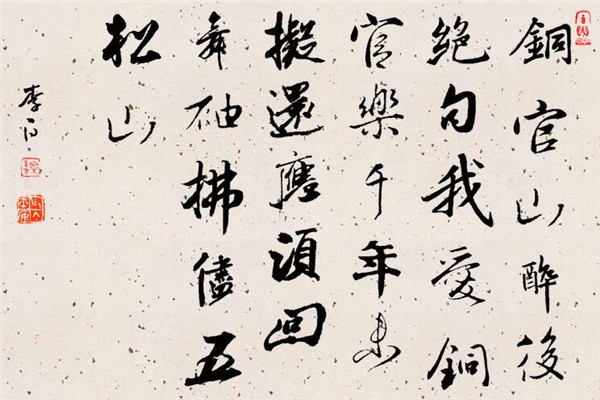 銅官山醉後
絕句我愛銅
官樂千年未
擬還應須回
舞袖拂儘五
松山
李白